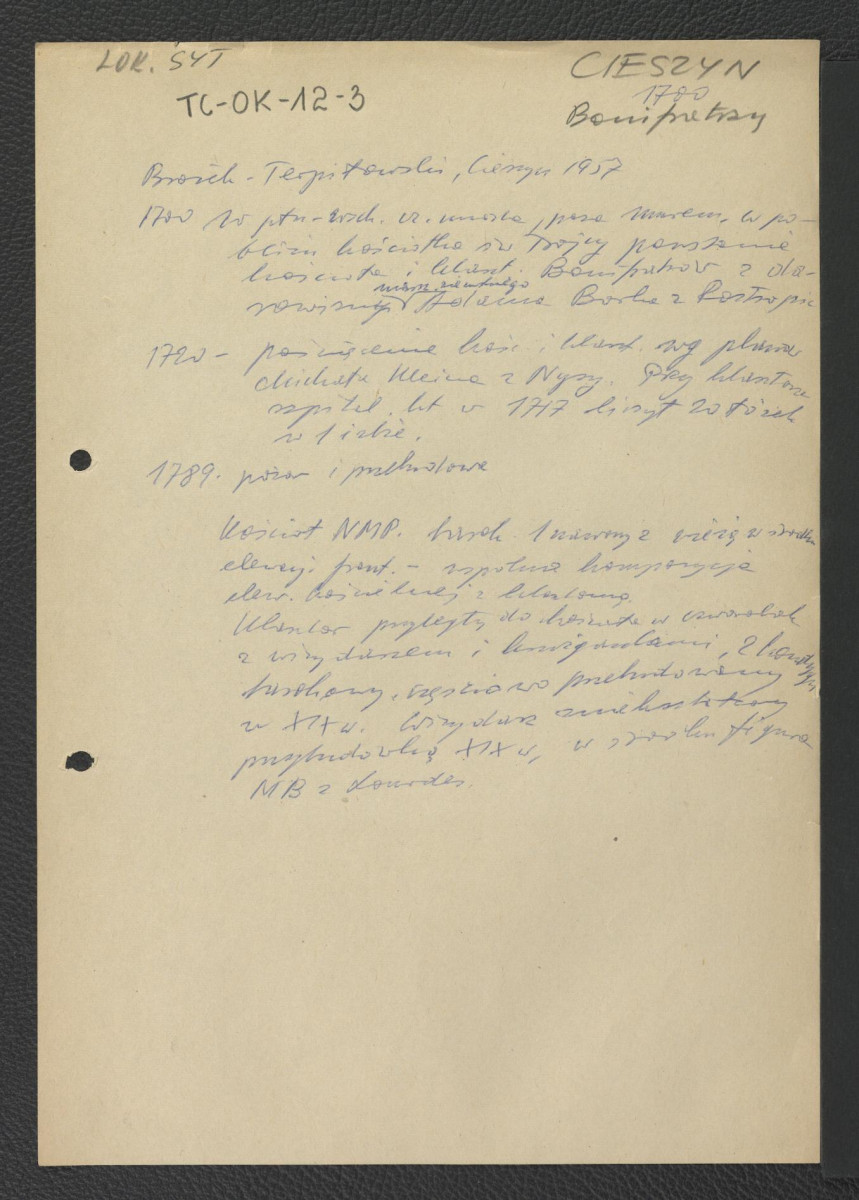 LOK. SYT
CIESZYN
TC-OK-12-3
1700
Bonifratrzy
Brożek - Terpiłowski, Cieszyn 1957
1700 w płn-wsch. cz. miasta, poza murem, w po-
bliżu kościółka św Trójcy powstanie
kościoła i klaszt. Bonifratrów z da-
rowizny Adama Borka z Roztropic
marsz. ziemskiego
1720 - poświęcenie kośc i klaszt. wg planów
Michała Kleina z Nysy. Przy klasztorze
szpital. kt w 1717 liczył 20 łóżek
w 1 izbie.
1789. pożar i przebudowa
Kościół NMP. barok. 1 nawowy z wieżą w środku
elewacji. front. - wspólna kompozycja
elew. kościelnej z klasztorną.
Klasztor przyległy do kościoła w czworobok
z wirydarzem i krużgankami, 2 kondygn.
barokowy, częściowo przebudowany
w XIX w. Wirydarz zniekształcony
przybudówką XIX w, w środku figura
MB z Lourdes.